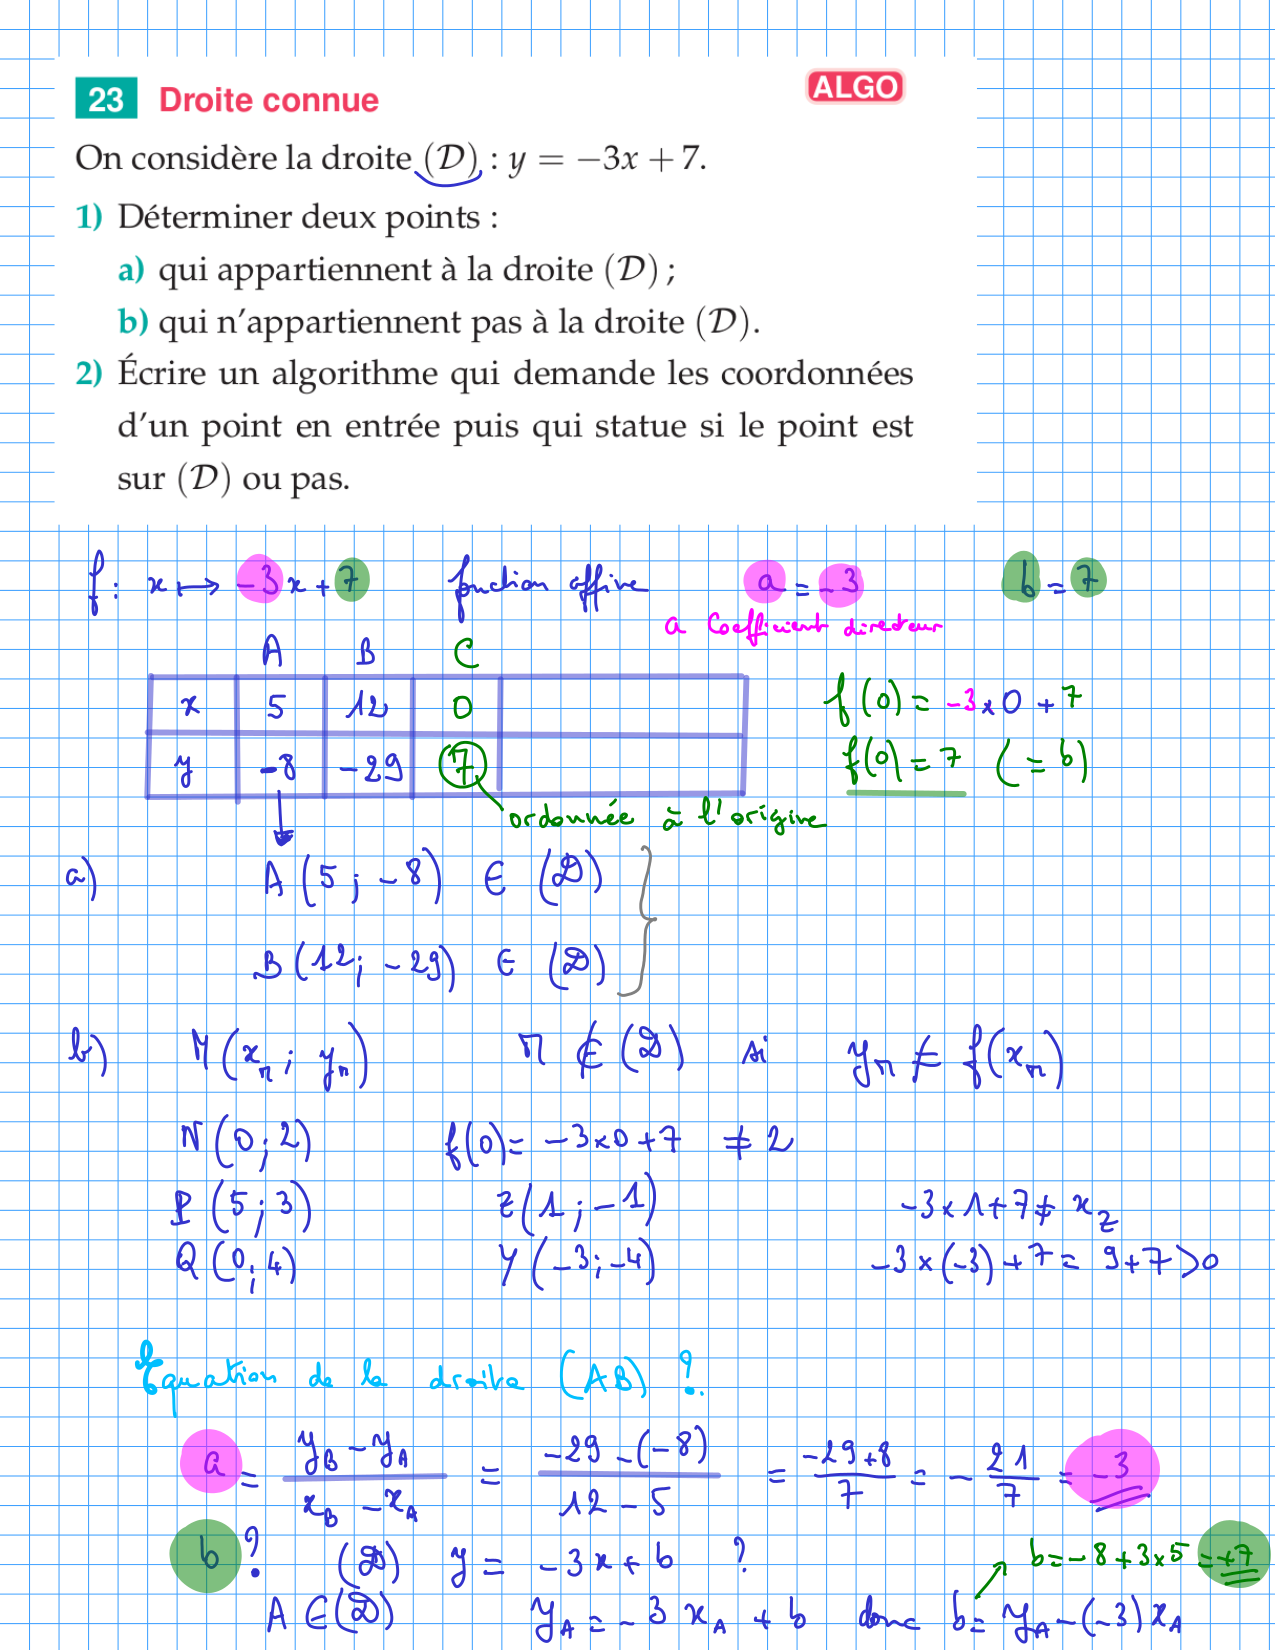 23 Droite connue ALGO
On considère la droite (D) : y = −3x + 7.
1) Déterminer deux points :
a) qui appartiennent à la droite (D) ;
b) qui n'appartiennent pas à la droite (D).
2) Écrire un algorithme qui demande les coordonnées
d'un point en entrée puis qui statue si le point est
sur (D) ou pas.
f : x ↦ -3x + 7 fonction affine a = -3 b = 7
a Coefficient directeur
A B C
x 5 12 0
f(0) = -3×0 + 7
y -8 -29 7
f(0) = 7 (= b)
ordonnée à l'origine
a) A (5 ; -8) ∈ (D)
B (12 ; -29) ∈ (D)
b) M (x_M ; y_M) M ∉ (D) si y_M ≠ f(x_M)
N (0 ; 2) f(0) = -3×0 + 7 ≠ 2
P (5 ; 3) Z (1 ; -1) -3×1+7 ≠ x_Z
Q (0 ; 4) Y (-3 ; -4) -3×(-3)+7 = 9+7 > 0
Equation de la droite (AB) ?
a = (y_B - y_A)/(x_B - x_A) = (-29 - (-8))/(12 - 5) = (-29+8)/7 = - 21/7 = -3
b ? (D) y = -3x + b ? b = -8 + 3×5 = +7
A ∈ (D) y_A = -3 x_A + b donc b = y_A - (-3) x_A